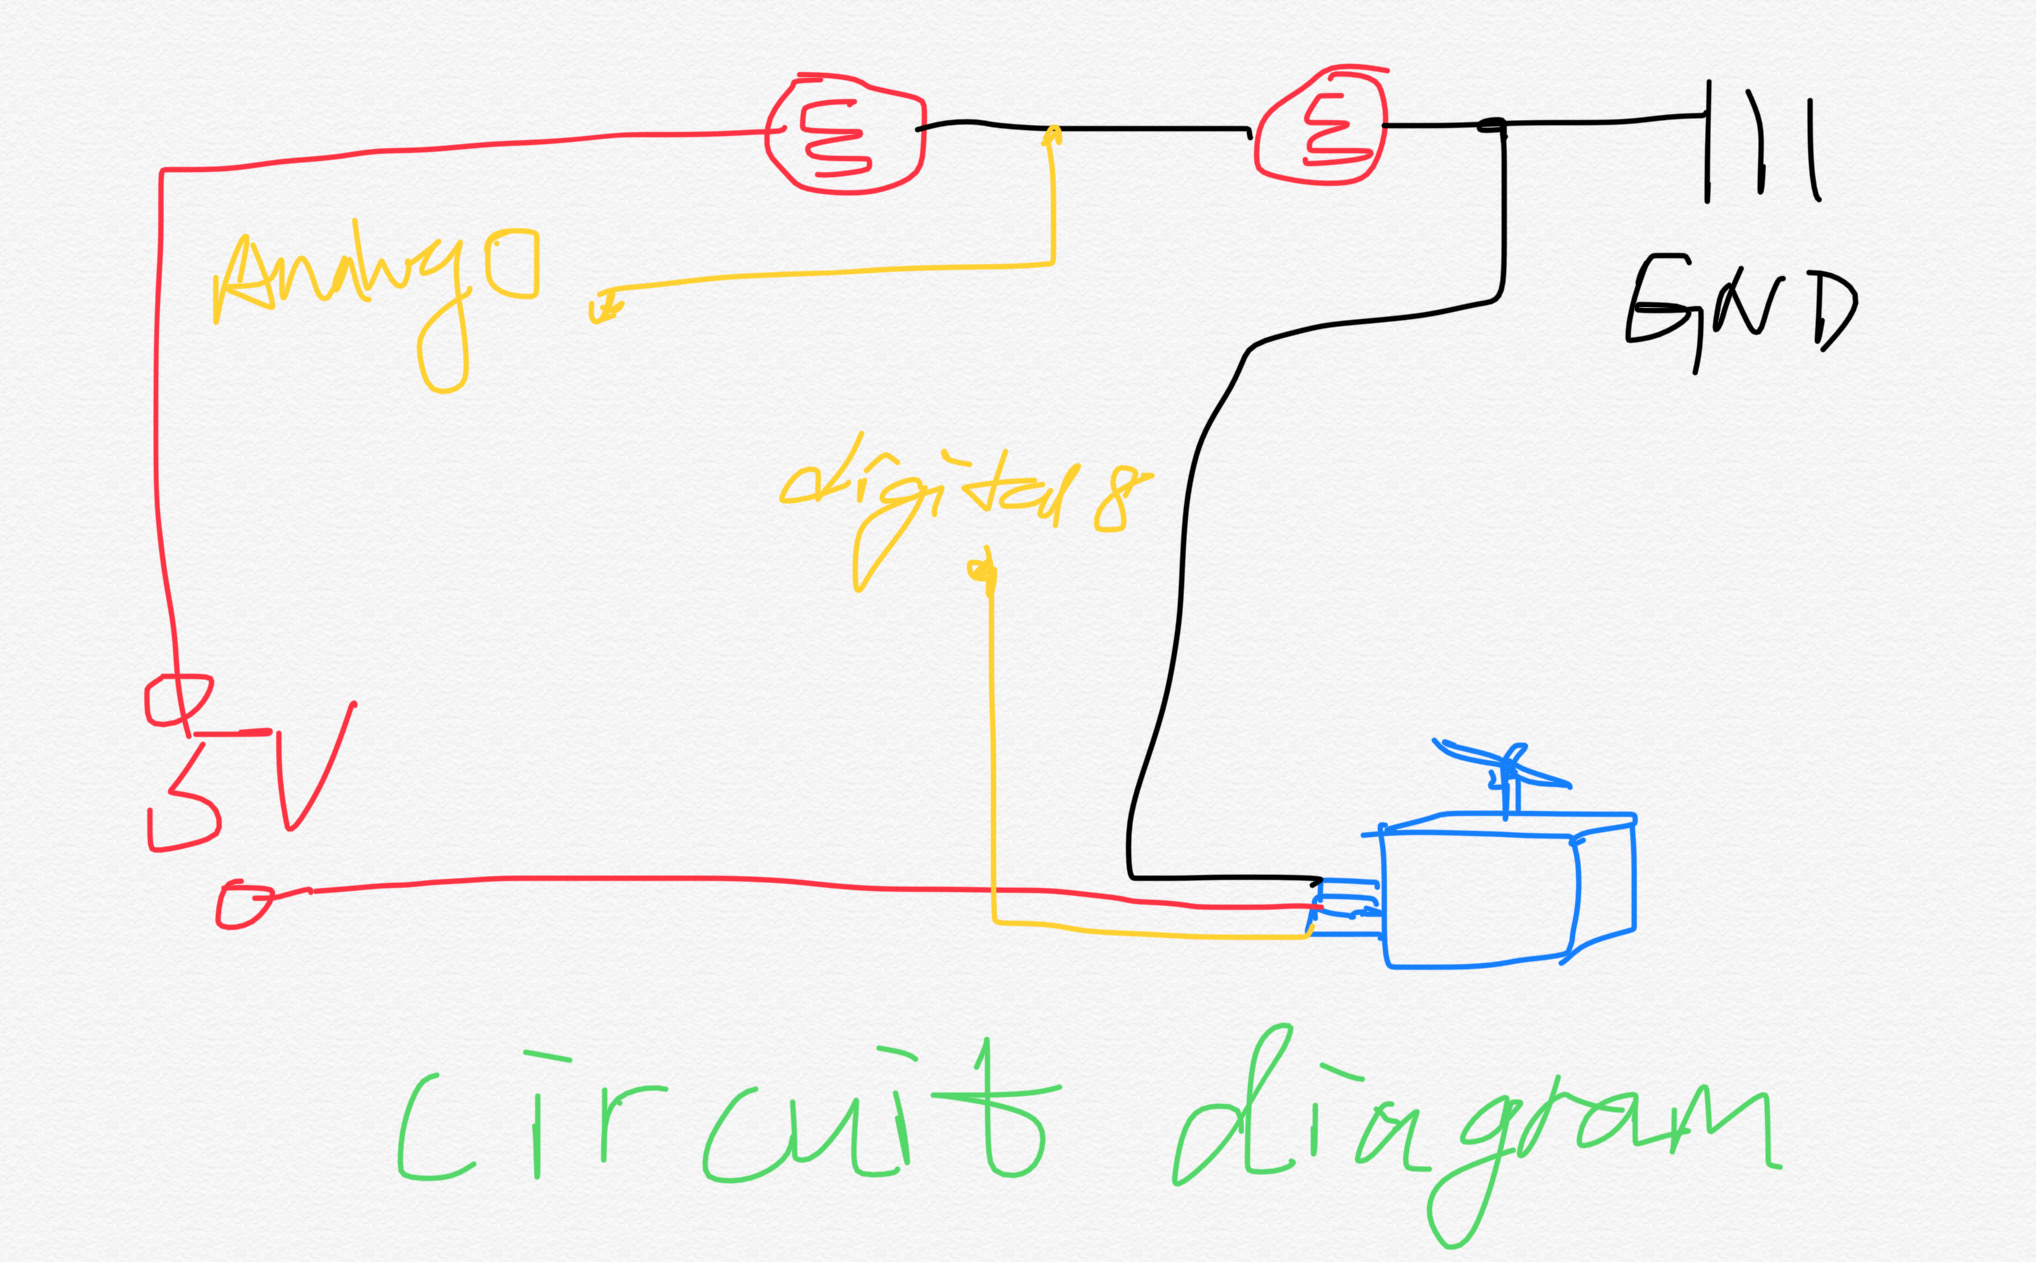 Analog 0
GND
digital 8
5V
circuit diagram